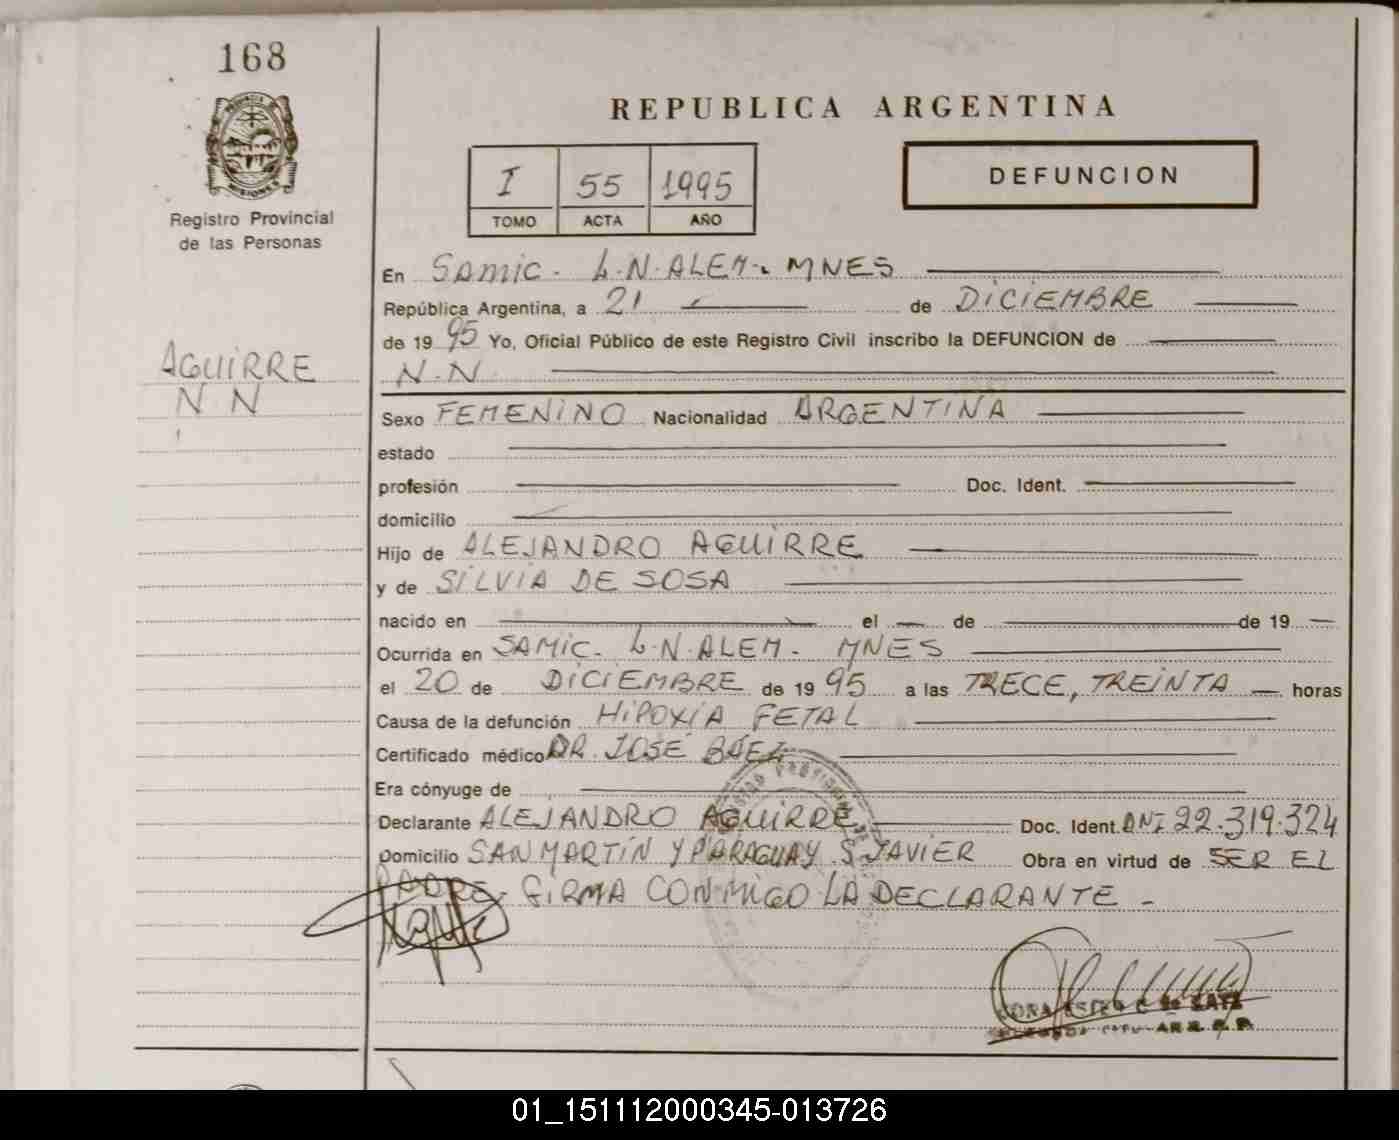 168
REPUBLICA ARGENTINA
I 55 1995
TOMO ACTA AÑO
DEFUNCION
Registro Provincial
de las Personas
MISIONES
AGUIRRE
N N
En SAMIC - L.N.ALEM - MNES
República Argentina, a 21 de DICIEMBRE
de 19 95 Yo, Oficial Público de este Registro Civil inscribo la DEFUNCION de
N.N
Sexo FEMENINO Nacionalidad ARGENTINA
estado
profesión Doc. Ident.
domicilio
Hijo de ALEJANDRO AGUIRRE
y de SILVIA DE SOSA
nacido en el de de 19
Ocurrida en SAMIC - L.N.ALEM - MNES
el 20 de DICIEMBRE de 19 95 a las TRECE, TREINTA horas
Causa de la defunción HIPOXIA FETAL
Certificado médico DR. JOSÉ BÁEZ
Era cónyuge de
Declarante ALEJANDRO AGUIRRE Doc. Ident. DNI 22.319.324
Domicilio SAN MARTIN Y PARAGUAY S. JAVIER Obra en virtud de SER EL
PADRE - FIRMA CONMIGO LA DECLARANTE -
01_151112000345-013726